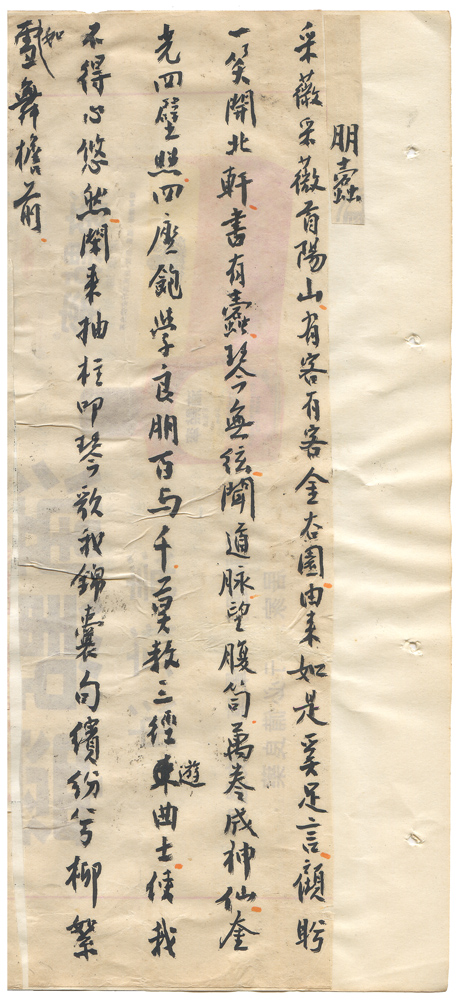 朋蠹
采薇采薇首陽山有客有客金谷園由来如是奚足言顧盻
一笑開北軒書有蠹琴無絃聞道脉望腹笥萬卷成神仙金
光四壁照四座飽學良朋百与千莫教三徑来遊曲士使我
不得心悠然閑来抽柱叩琴歌和錦囊句繽紛兮柳絮
如雪舞檐前